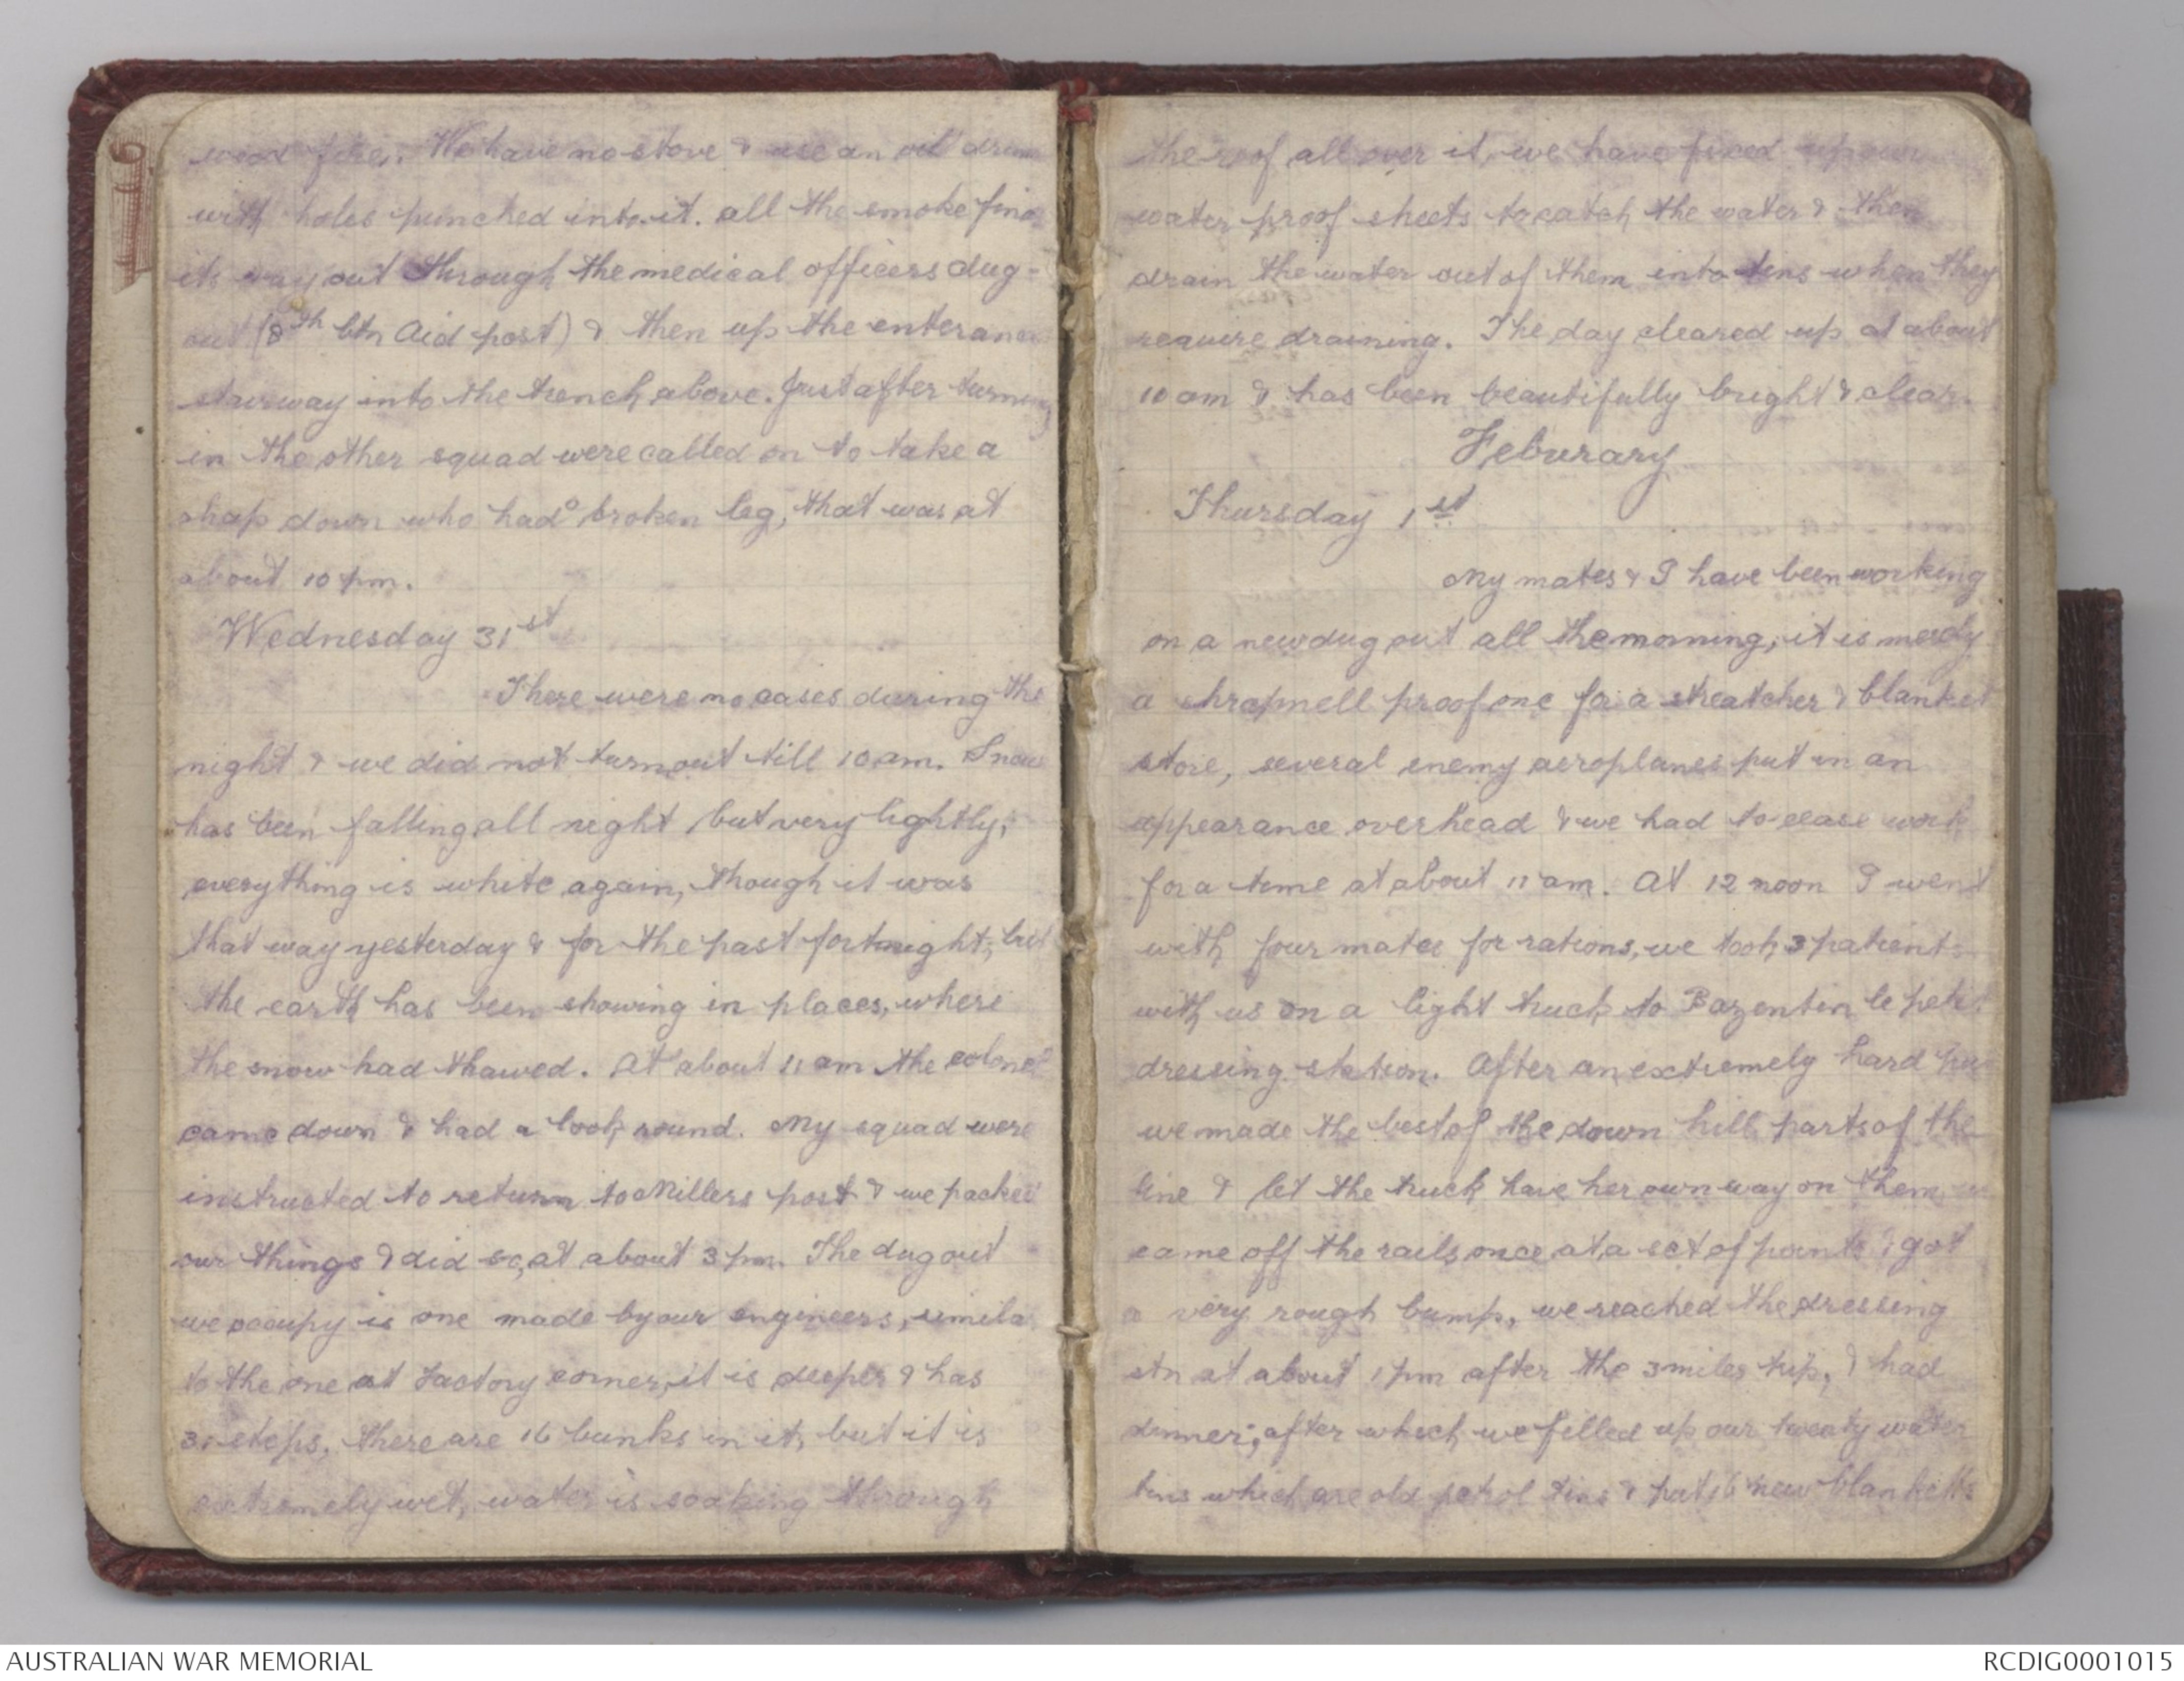 wood fire. We have no stove & use an oil drum
with holes punched into it. all the smoke finds
its way out through the medical officers dug-
out (8th btn Aid post) & then up the enterance
stairway into the trench above. Just after turning
in the other squad were called on to take a
chap down who had a broken leg, that was at
about 10 pm.
Wednesday 31st
There were no cases during the
night & we did not turn out till 10 am. Snow
has been falling all night but very lightly;
everything is white again, though it was
that way yesterday & for the past fortnight; but
the earth has been showing in places, where
the snow had thawed. At about 11 am the colonel
came down & had a look round. My squad were
instructed to return to Millers post & we packed
our things & did so, at about 3 pm. The dug out
we occupy is one made by our engineers, simila
to the one at Factory corner, it is deeper & has
31 steps, there are 16 bunks in it, but it is
extremely wet, water is soaking through
the roof all over it, we have fixed up our
water proof sheets to catch the water & then
drain the water out of them into tins when they
require draining. The day cleared up at about
10 am & has been beautifully bright & clear.
Feburary
Thursday 1st
My mates & I have been working
on a new dug out all the morning, it is merely
a shrapnell proof one for a streatcher & blanket
store, several enemy aeroplanes put in an
appearance overhead & we had to cease work
for a time at about 11 am. At 12 noon I went
with four mates for rations, we took 3 patients
with us on a light truck to Bazentin le petit
dressing station. After an extremely hard
we made the best of the down hill parts of the
line & let the truck have her own way on them,
came off the rails once at a set of points & got
a very rough bump, we reached the dressing
stn at about 1 pm after the 3 miles trip, & had
dinner; after which we filled up our twenty water
tins which are old petrol tins & put 16 new blanketts
AUSTRALIAN WAR MEMORIAL
RCDIG0001015